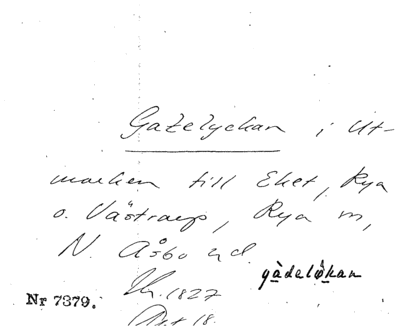 Gatelyckan i Ut-
marken till Eket, Rya
o. Västraup, Rya sn,
N. Åsbo hd.
gàdelỳkan
Nr 7379.
1827